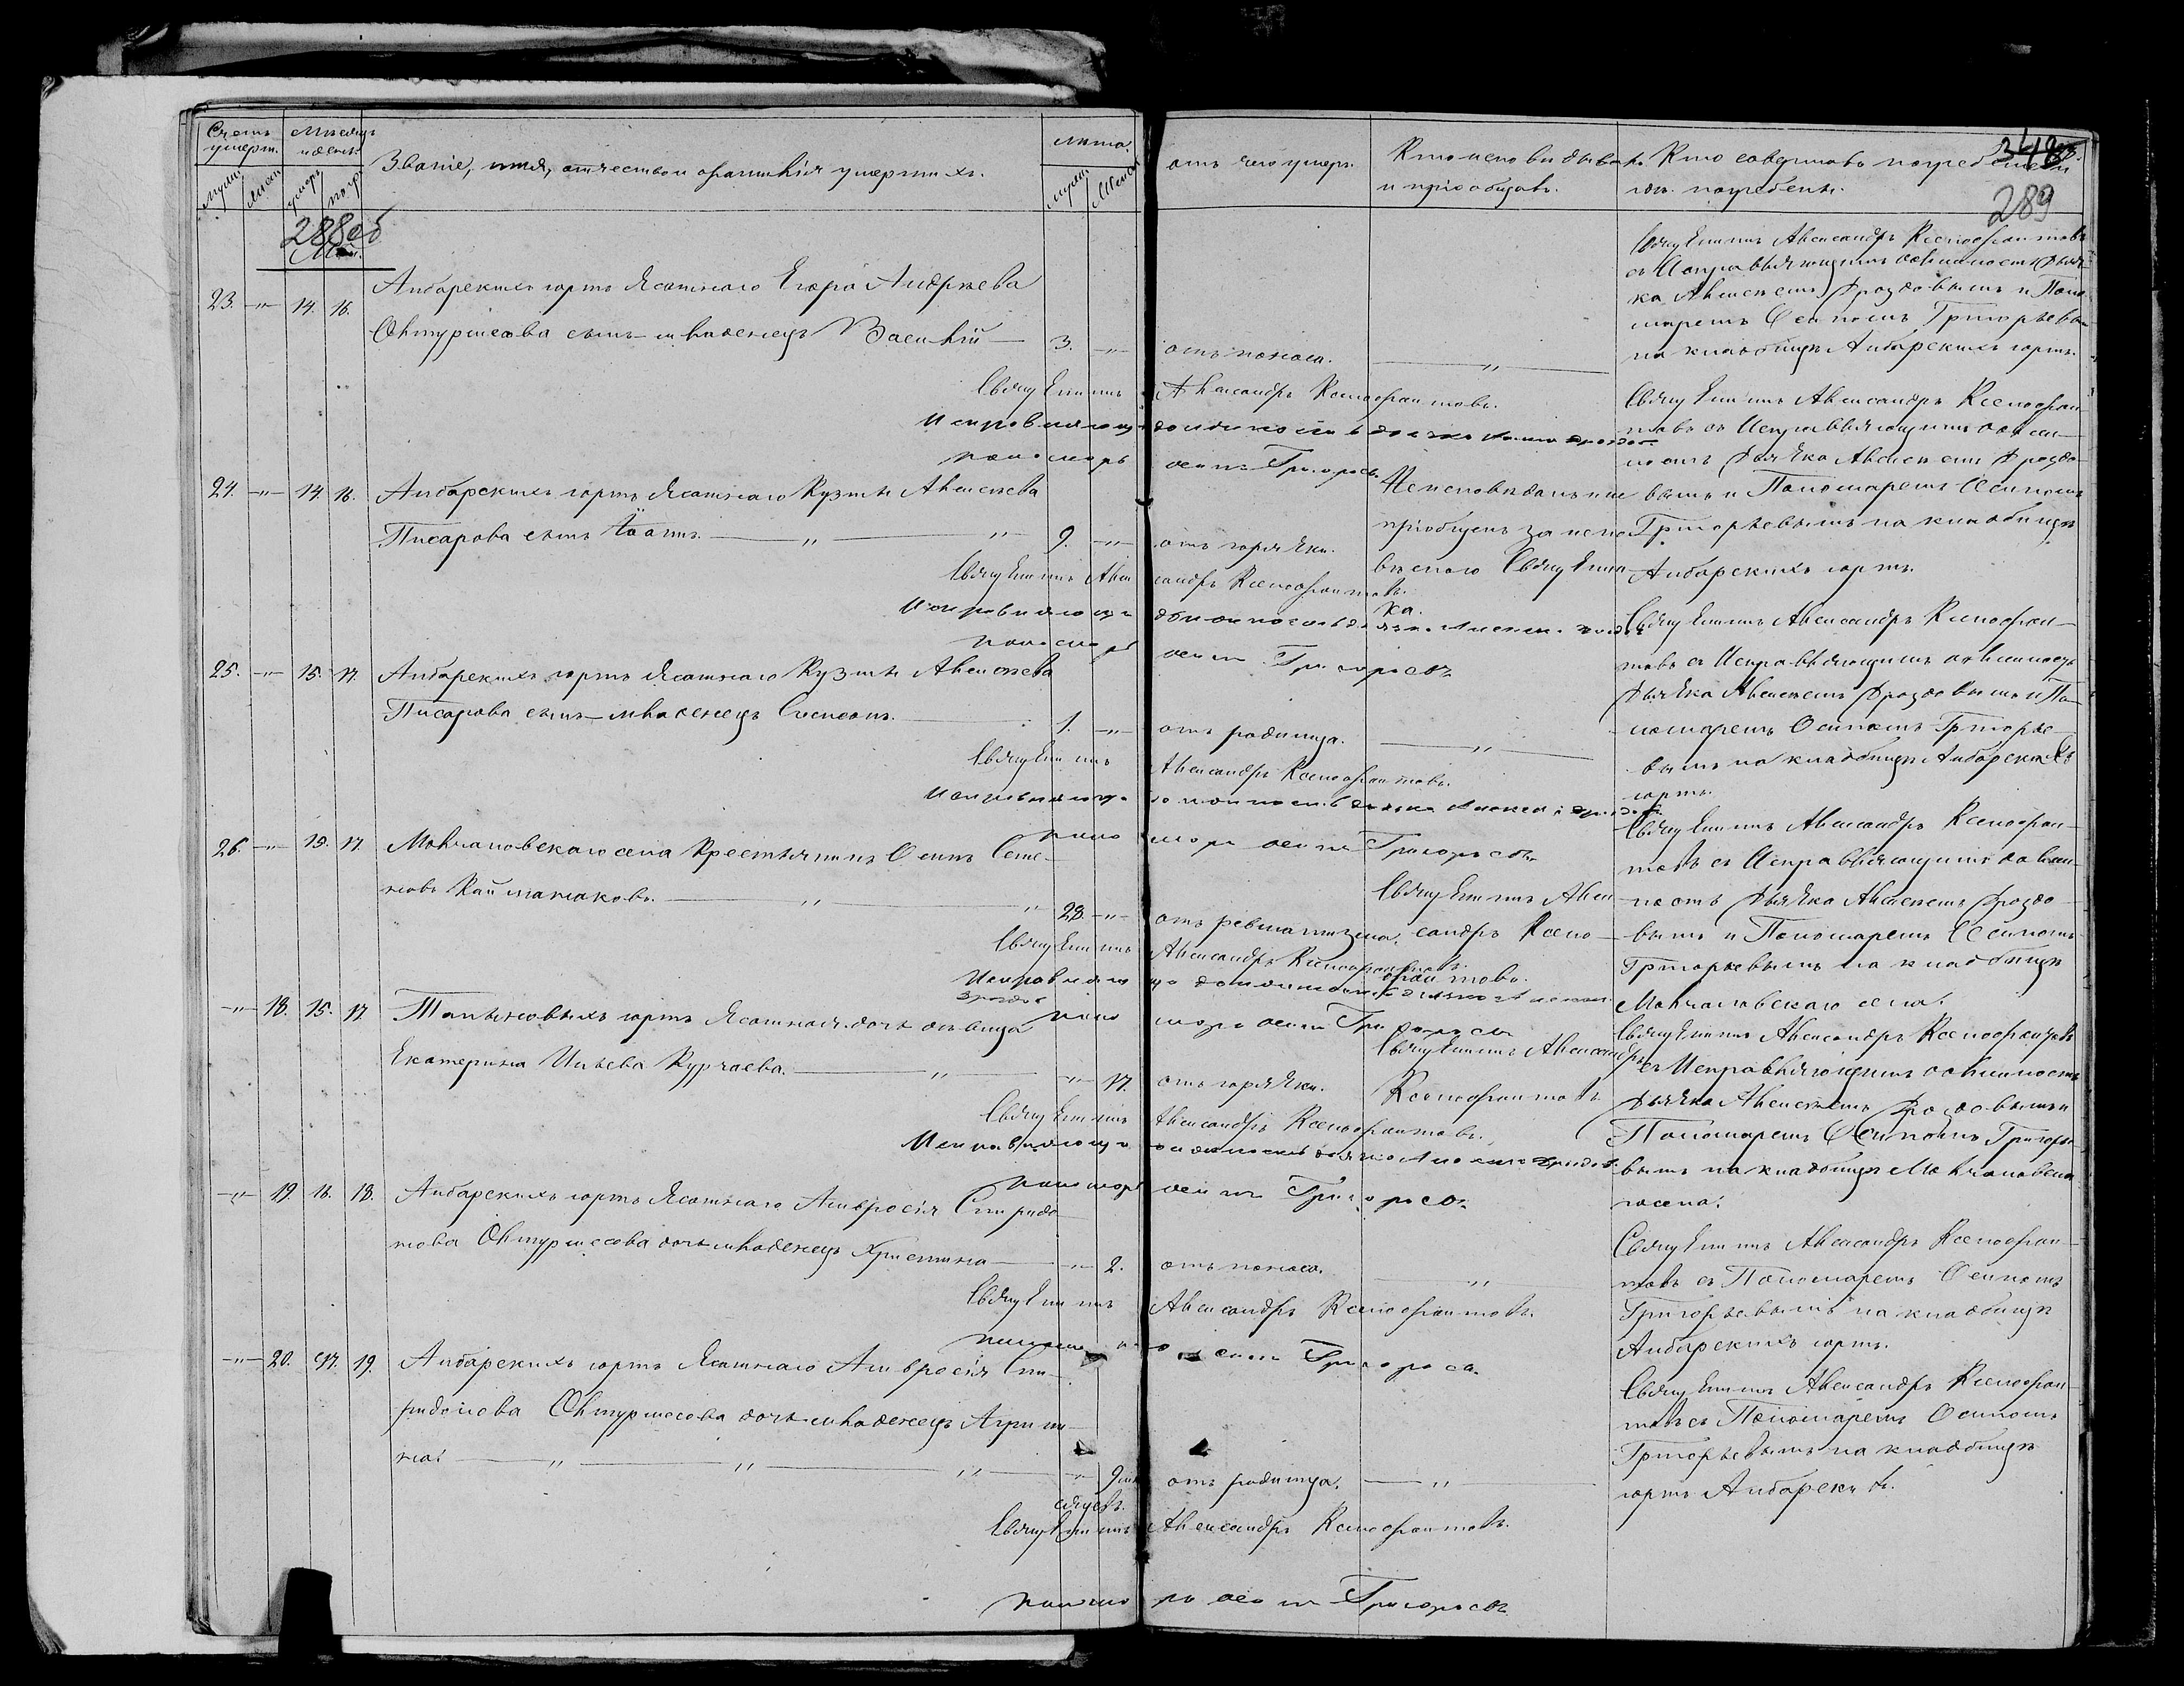 Счетъ умерш.
Мѣсяцъ и день.
Званіе, имя, отчество и фамилія умершихъ.
Лѣта.
отъ чего умеръ.
Кто исповѣдывалъ и пріобщалъ.
Кто совершалъ погребеніе и гдѣ погребены.
289
288об
Май.
23. -"- 14. 16. Анбарскихъ юртъ Ясашнаго Егора Андрѣева
Охтуршесова сынъ младенецъ Василій — 3. -"- отъ поноса. — " —
Священникъ Александръ Ксенофонтовъ
съ Исправляющимъ должность Дьяч-
ка Алексѣемъ Дроздовымъ и Поно-
маремъ Осипомъ Григорьевы
на кладбищѣ Анбарскихъ юртъ.
Священникъ Александръ Ксенофонтовъ.
Исправляющ. должность дьячка Дроздов
пономарь Осипъ Григорьевъ
24. -"- 14. 16. Анбарскихъ юртъ Ясашнаго Кузмы Алексѣева
Писарова сынъ — " — " — 9. -"- отъ горячки.
Неисповѣданъ и не
пріобщенъ за непо-
Священни-
ка.
Священникъ Александръ Ксенофон-
товъ съ Исправляющимъ долж-
ность Дьячка Алексѣемъ Дроздо-
вымъ и Пономаремъ Осипомъ
Григорьевымъ на кладбищѣ
Анбарскихъ юртъ.
Священникъ Александръ Ксенофонтовъ.
Исправляющ. должность дьячка Алексѣй Дроздов
пономарь Осипъ Григорьевъ
25. -"- 15. 17. Анбарскихъ юртъ Ясашнаго Кузмы Алексѣева
Писарова сынъ младенецъ — 1. -"- отъ родимца. — " —
Священникъ Александръ Ксенофон-
товъ съ Исправляющимъ должность
Дьячка Алексѣемъ Дроздовымъ и По-
номаремъ Осипомъ Григорье-
вымъ на кладбищѣ Анбарскихъ
юртъ.
Священникъ Александръ Ксенофонтовъ.
Исправляющ. должность дьячка Алексѣй Дроздов
пономарь Осипъ Григорьевъ
26. -"- 15. 17. Молчановскаго села Крестьянинъ Осипъ Семе-
новъ Каймакаковъ. — " — " 28. -"- отъ ревматизма.
Священникъ Алек-
сандръ Ксено-
фонтовъ.
Священникъ Александръ Ксенофон-
товъ съ Исправляющимъ долж-
ность Дьячка Алексѣемъ Дроздо-
вымъ и Пономаремъ Осипомъ
Григорьевымъ на кладбищѣ
Молчановскаго села.
Священникъ Александръ Ксенофонтовъ.
Исправляющ. должность дьячка Алексѣй
Дроздов пономарь Осипъ Григорьевъ
-"- 18. 15. 17. юртъ Ясашная дочь дѣвица
Екатерина Ильева Курчаева. — " — -"- 17. отъ горячки.
Священникъ Александръ
Ксенофонтовъ
Священникъ Александръ Ксенофонтовъ
съ Исправляющимъ должность
Дьячка Алексѣемъ Дроздовымъ и
Пономаремъ Осипомъ Григорье-
вымъ на кладбищѣ Молчановска-
го села.
Священникъ Александръ Ксенофонтовъ.
Исправляющ. должность дьячка Алексѣй Дроздов.
пономарь Осипъ Григорьевъ
-"- 19. 16. 18. Анбарскихъ юртъ Ясашнаго Амвросія Спиридо-
нова Охтуршесова дочь младенецъ Христина — -"- 2. отъ поноса. — " —
Священникъ Александръ Ксенофон-
товъ съ Пономаремъ Осипомъ
Григорьевымъ на кладбищѣ
Анбарскихъ юртъ.
Священникъ Александръ Ксенофонтовъ.
пономарь Осипъ Григорьевъ
-"- 20. 17. 19. Анбарскихъ юртъ Ясашнаго Амвросія Спи-
ридонова Охтуршесова дочь младенецъ Агрипи-
на. — " — " — " — -"- 9 мѣ-
сяцевъ. отъ родимца. — " —
Священникъ Александръ Ксенофон-
товъ съ Пономаремъ Осипомъ
Григорьевымъ на кладбищѣ
юртъ Анбарскихъ.
Священникъ Александръ Ксенофонтовъ.
пономарь Осипъ Григорьевъ